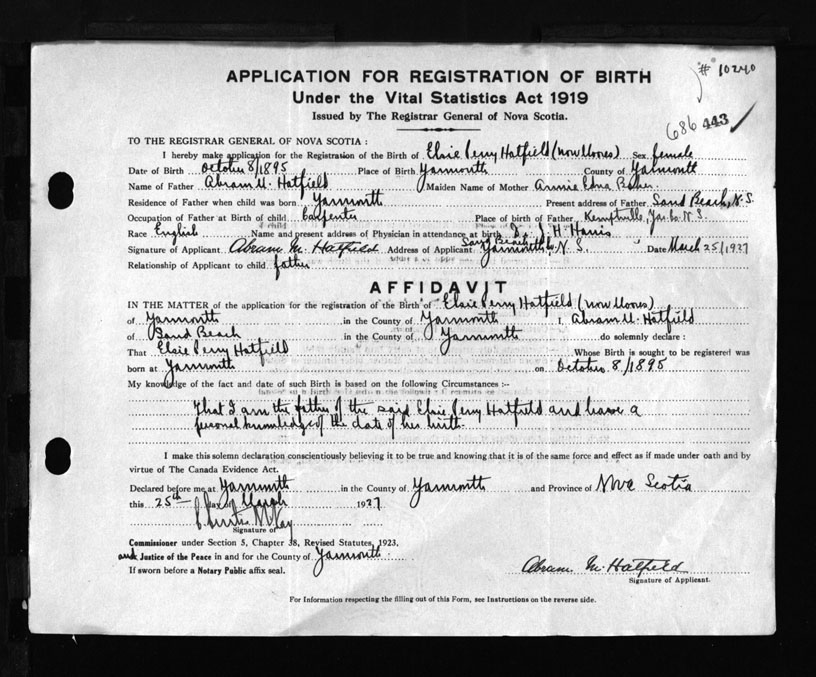 # 10240
APPLICATION FOR REGISTRATION OF BIRTH
Under the Vital Statistics Act 1919
Issued by The Registrar General of Nova Scotia.
686 443
TO THE REGISTRAR GENERAL OF NOVA SCOTIA :
I hereby make application for the Registration of the Birth of Elsie Perry Hatfield (now Moores) Sex female
Date of Birth October 8/1895 Place of Birth Yarmouth County of Yarmouth
Name of Father Abram M. Hatfield Maiden Name of Mother Annie Edna Baker
Residence of Father when child was born Yarmouth Present address of Father Sand Beach, N.S.
Occupation of Father at Birth of child Carpenter Place of birth of Father Kemptville, Yar. Co. N.S.
Race English Name and present address of Physician in attendance at birth J. H. Harris
Signature of Applicant Abram M. Hatfield Address of Applicant Sand Beach Yarmouth Co. N.S. Date March 25/1927
Relationship of Applicant to child father
AFFIDAVIT
IN THE MATTER of the application for the registration of the Birth of Elsie Perry Hatfield (now Moores)
of Yarmouth in the County of Yarmouth I, Abram M. Hatfield
of Sand Beach in the County of Yarmouth do solemnly declare :
That Elsie Perry Hatfield Whose Birth is sought to be registered was
born at Yarmouth on October 8/1895
My knowledge of the fact and date of such Birth is based on the following Circumstances :-
That I am the father of the said Elsie Perry Hatfield and have a
personal knowledge of the date of her birth.
I make this solemn declaration conscientiously believing it to be true and knowing that it is of the same force and effect as if made under oath and by
virtue of The Canada Evidence Act.
Declared before me at Yarmouth in the County of Yarmouth and Province of Nova Scotia
this 25th day of March 1927
Signature of
Commissioner under Section 5, Chapter 38, Revised Statutes, 1923,
and Justice of the Peace in and for the County of Yarmouth
If sworn before a Notary Public affix seal.
Abram M. Hatfield
Signature of Applicant.
For Information respecting the filling out of this Form, see Instructions on the reverse side.